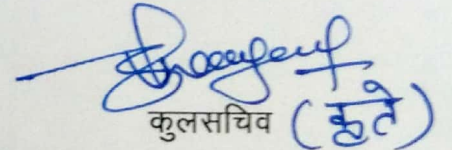 कुलसचिव (कृते)